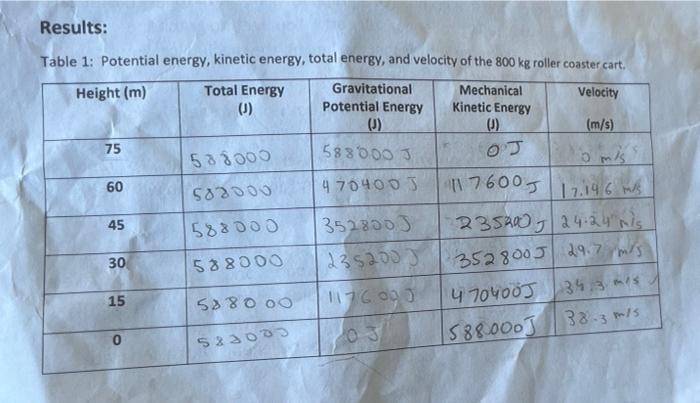 Results:
Table 1: Potential energy, kinetic energy, total energy, and velocity of the 800 kg roller coaster cart.
Height (m) Total Energy (J) Gravitational Potential Energy (J) Mechanical Kinetic Energy (J) Velocity (m/s)
75 588000 588000 J 0 J 0 m/s
60 588000 470400 J 117600 J 17.146 m/s
45 588000 352800 J 235200 J 24.24 m/s
30 588000 235200 J 352800 J 29.7 m/s
15 588000 117600 J 470400 J 34.3 m/s
0 588000 0 J 588000 J 38.3 m/s